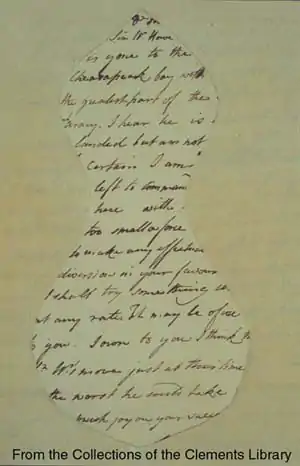 Sir W Howe
is gone to the
Chesapeak bay with
the greatest part of the
army. I hear he is
landed but am not
certain. I am
left to command
here with
too small a force
to make any effectual
diversion in your favour
I shall try something
at any rate. It may be of use
to you. I own to you I think
Wm's move just at this time
the worst he could take
much joy on your
From the Collections of the Clements Library